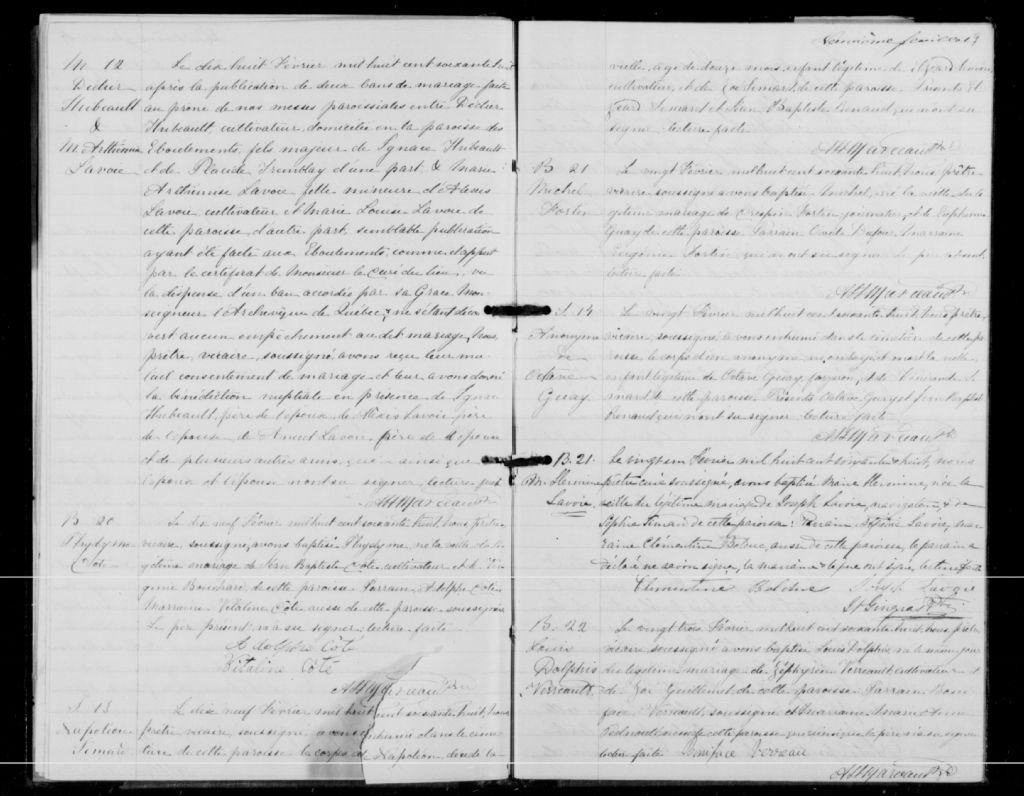 M. 12
Didier
Hubeault
&
M. Arthémise
Lavoie
Le dix huit Février mil huit cent soixante huit
après la publication de deux bans de mariage faite
au prône de nos messes paroissiales entre Didier
Hubeault, cultivateur, domicilié en la paroisse des
Eboulements, fils majeur de Ignace Hubeault
& de Placide Tremblay d'une part, & Marie
Arthémise Lavoie, fille mineure d'Alexis
Lavoie, cultivateur et Marie Louise Lavoie de
cette paroisse, d'autre part, semblable publication
ayant été faite aux Eboulements, comme il appert
par le certificat de Monsieur le Curé du lieu, vu
la dispense d'un ban accordée par sa Grace Mon-
seigneur l'Archevêque de Québec, & ne s'étant décou
vert aucun empêchement au dit mariage, Nous,
prêtre, vicaire, soussigné, avons reçu leur mu-
tuel consentement de mariage et leur avons donné
la bénédiction nuptiale en présence de Ignace
Hubeault, père de l'époux, de Alexis Lavoie, père
de l'épouse, de Lavoie, frère de l'épouse
et de plusieurs autres amis, qui ainsi que
l'époux et l'épouse n'ont su signer, lecture faite
A H Marceau Ptre
B. 20
Phydyme
Côté
Le dix neuf Février mil huit cent soixante huit, Nous, Prêtre
vicaire, soussigné, avons baptisé Phydyme, né la veille du lé-
gitime mariage de Jean Baptiste Côté, cultivateur et de
Bouchard, de cette paroisse. Parrain, Adolphe Côté,
Marraine Vitaline Côté aussi de cette paroisse soussignés
Le père présent n'a su signer, lecture faite
Adolphe Côté
Vitaline Côté
A H Marceau Ptre
S. 13
Napoléon
Simard
Le dix neuf Février mil huit cent soixante huit, nous
prêtre vicaire, soussigné, avons inhumé dans le cime-
tière de cette paroisse le corps de Napoléon, décédé la
Neuvième feuillet 9
veille, agé de douze mois, enfant légitime de
cultivateur, et de Zoé Simard, de cette paroisse. Présents
Simard et Jean Baptiste Renaud, qui n'ont su
signer, lecture faite
A H Marceau Ptre
B. 21
Michel
Fortin
Le vingt Février mil huit cent soixante huit, Nous, prêtre
vicaire, soussigné, avons baptisé Michel, né la veille du lé
gitime mariage de Crespin Fortin, journalier, et de Euphémie
Guay, de cette paroisse. Parrain Dufour, marraine
Eugénie Fortin, qui n'ont su signer, le père absent,
lecture faite
A H Marceau Ptre
S. 14
Anonyme
de
Octave
Guay
Le vingt Février mil huit cent soixante huit, Nous, prêtre,
vicaire, soussigné, avons inhumé dans le cimetière de cette pa-
roisse le corps d'un anonyme, ondoyé, et mort la veille
enfant légitime de Octave Guay, forgeron, & de Si-
mard de cette paroisse. Présents Octave Guay et Jean Baptiste
Renaud qui n'ont su signer, lecture faite
A H Marceau Ptre
B. 21.
M. Hermine
Lavoie
Le vingt un Février mil huit cent soixante & huit, nous
prêtre curé soussigné, avons baptisé Marie Hermine, née la
veille du légitime mariage de Joseph Lavoie, navigateur, & de
Sophie Simard de cette paroisse: Parrain Lavoie, mar
raine Clémentine Bolduc, aussi de cette paroisse, le parrain a
déclaré ne savoir signer, la marraine & le père ont signé, lecture faite
Clementine Bolduc Joseph Lavoie
J Gingras Ptre
B. 22
Louis
Dolphis
Verreault
Le vingt trois Février mil huit cent soixante huit, Nous, prêtre
vicaire soussigné avons baptisé Louis Dolphis, né le même jour
du légitime mariage de Zéphyrin Verreault, cultivateur et
de Zoé Guillemet de cette paroisse. Parrain Boni
face Verreault, soussigné et marraine
de cette paroisse qui ainsi que le père n'a su signer
lecture faite Boniface Verreau
A H Marceau Ptre